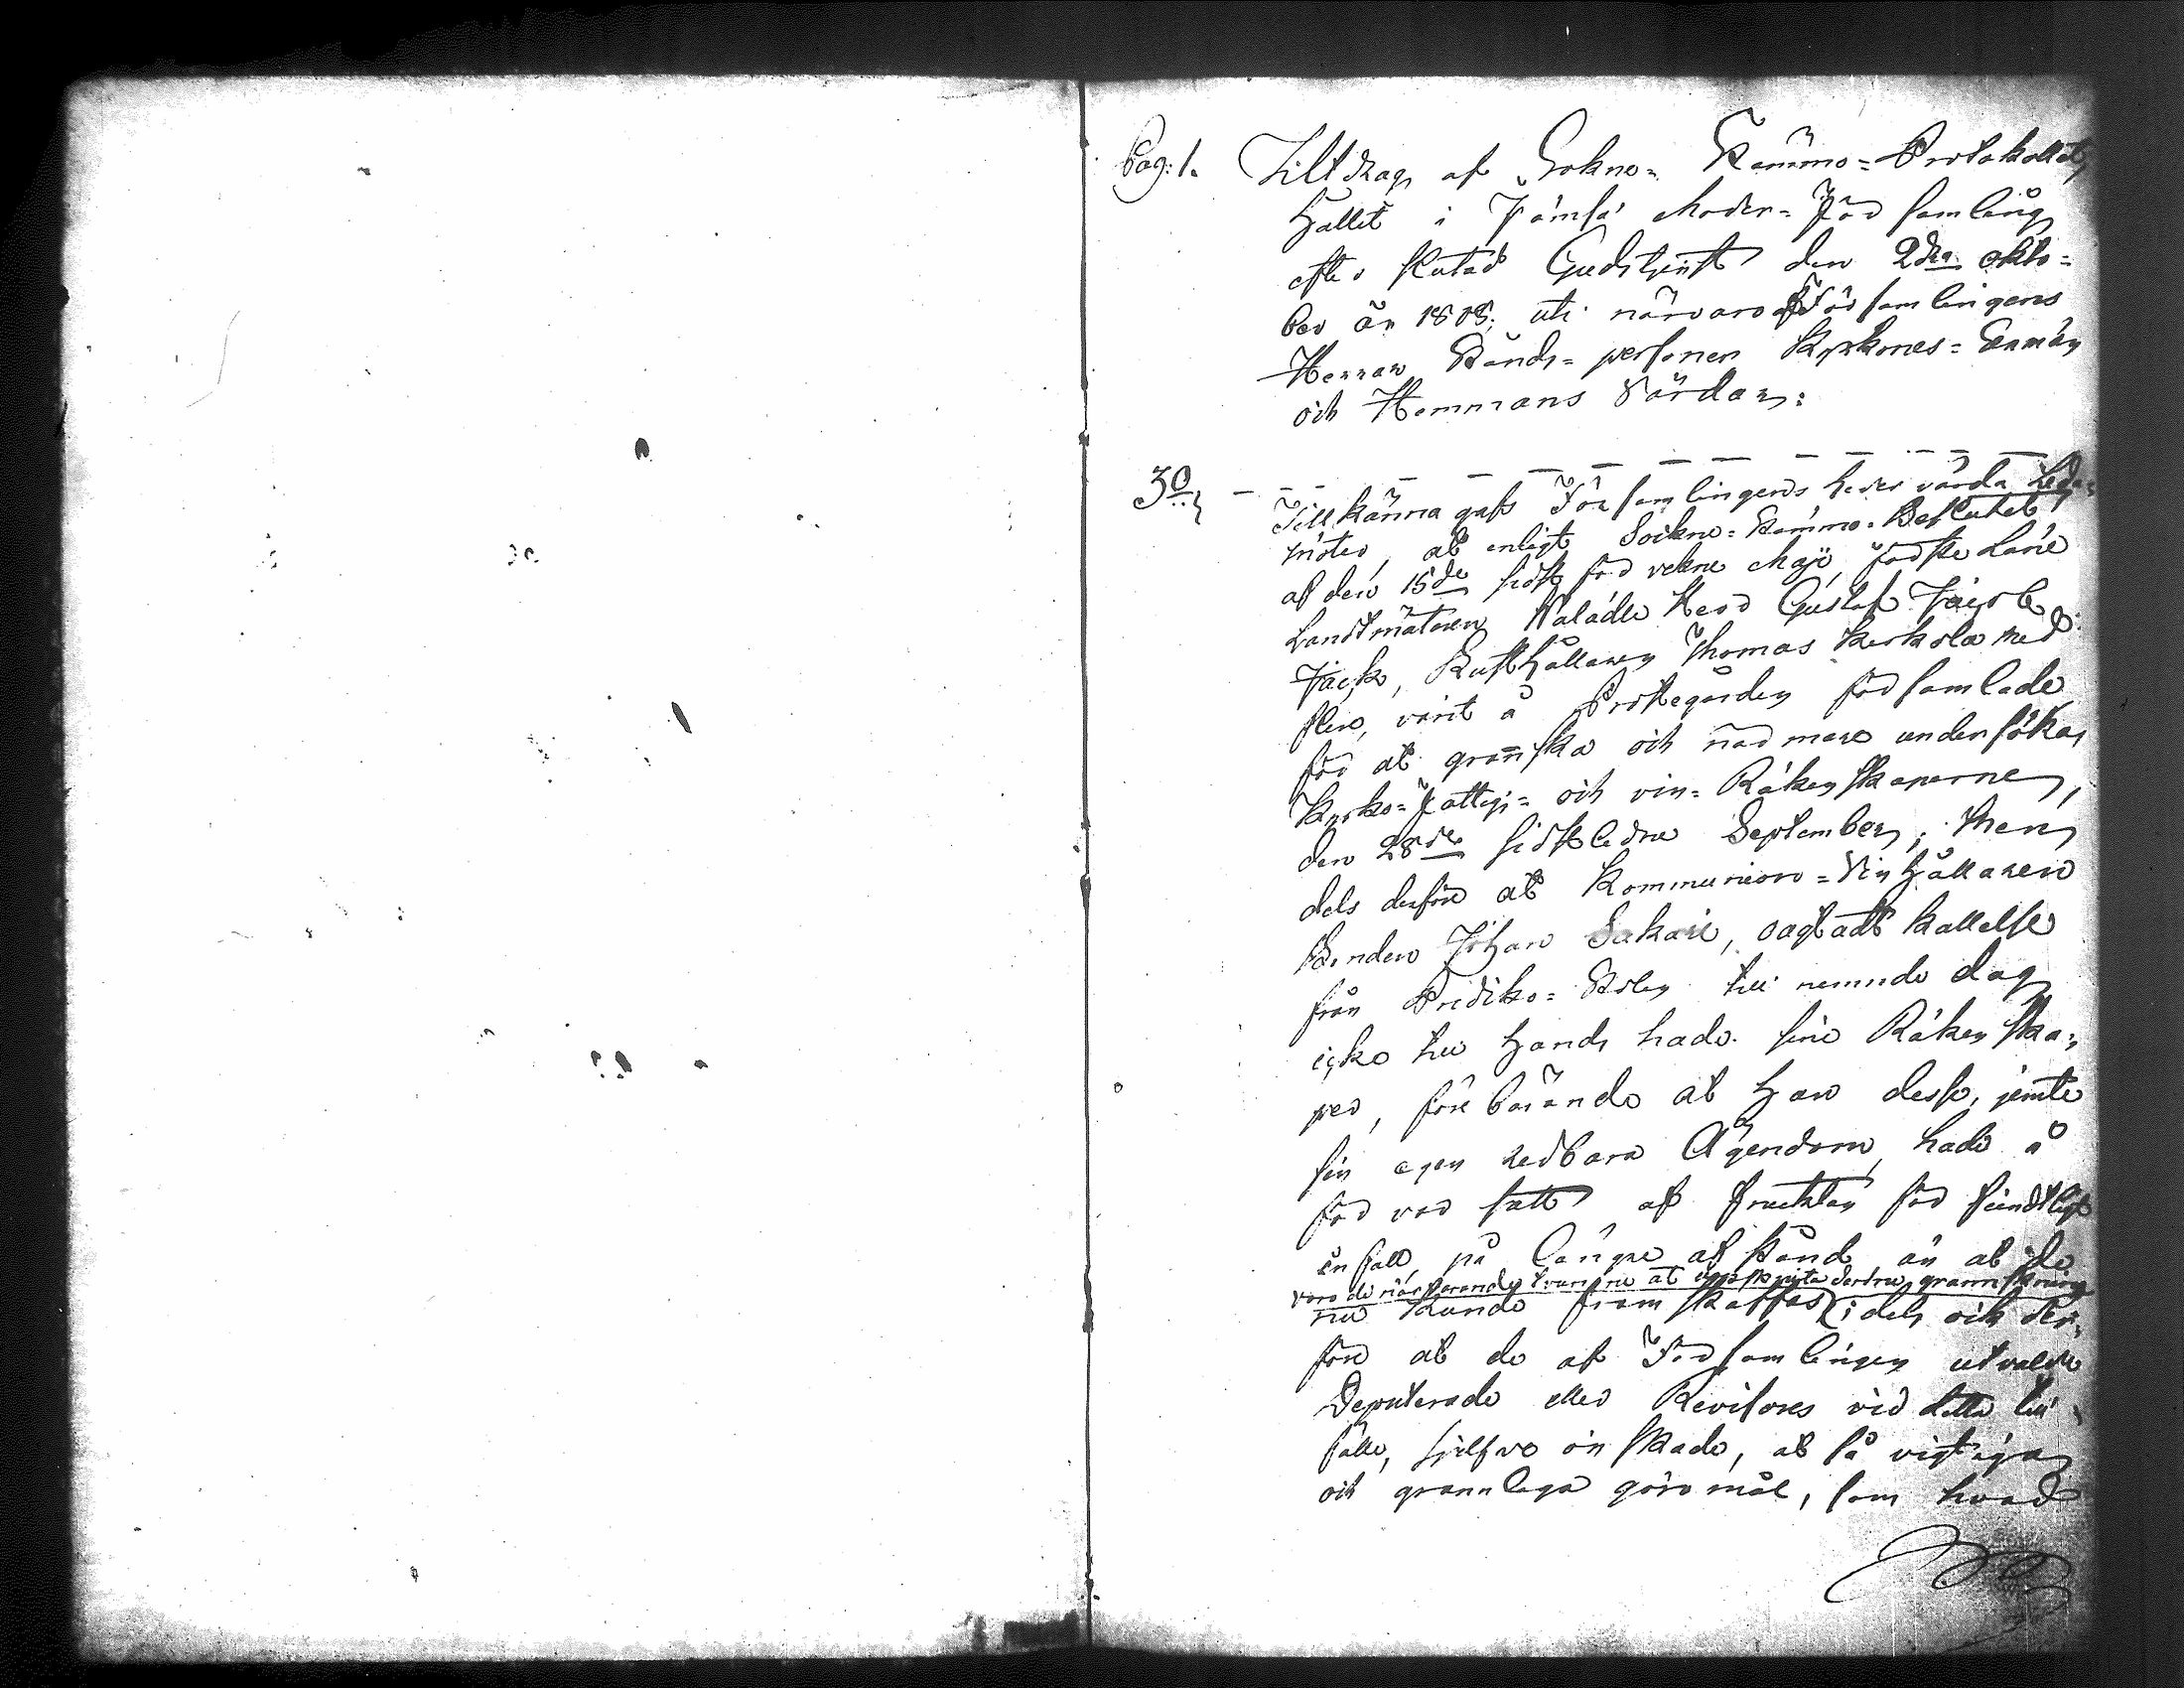 Pag: 1. Utdrag af Sokne- Stämmo- Protokollet,
Hållit i Jämsä Moder- Församling
efter slutad Gudstjenst den 2dra okto-
ber år 1808; uti närvaro af Församlingens
Herrar Stånds- personer Kyrkones- Sexmän
och Hemmans Värdar:
3o
Tillkänna gafs Församlingens hedervärda Leda-
möter, at enligt Sockne- Stämmo- Beslutet
af den 15de sidst förvekne Maji, förste Landt-
Landtmätaren Wälädle Herr Gustaf
Rusthållaren Thomas Kerkola med
flere, varit å Prostegården församlade
för at granska och närmare undersöka
Kyrko- Fattig- och vin- Räkenskaperne,
den 28de sidstledne September; men
dels derföre at Kommunion- Vin Hållaren
Bonden Johan Sakari, oagtadt kallelse
från Prediko- Stolen till nemnde dag
icke till hands hade sine Räkenska-
per, förebärande at han desse, jemte
sin egen redbara Ägendom, hade å
förvar satt af fruktan för fiendtligt
infall, på längre afstånd än at de
voro de närvarande tvungne at uppskjuta dertme granskning
nu kunde framskaffas; dels och der-
före at de af Församlingen utvalde
Deputerade eller Revisores vid detta till-
fälle, sjelfve önskade, at så vigtiga
och grannlaga göromål, som hvad